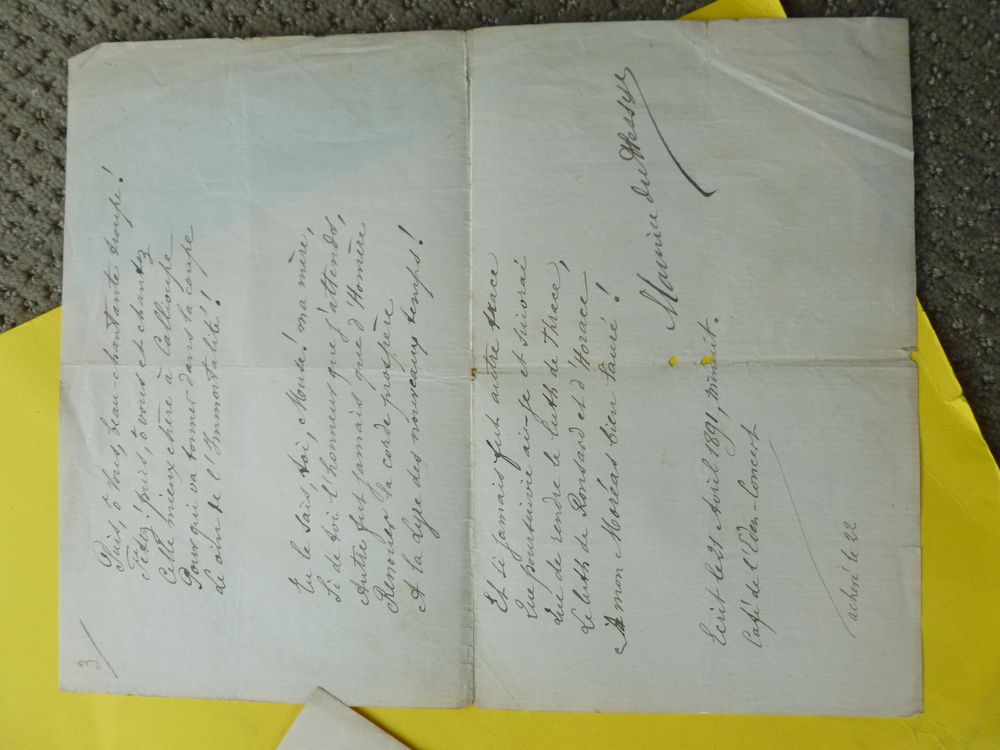 3
Puis, ô vous, beau-chantante troupe !
Fêtez ! puis, ô vous et chantez
Celle mieux chère à Calliope
Pour qui va tonner dans la coupe
Le vin de l'Immortalité !
Tu le sais, toi, Muse ! ma mère,
Si de toi l'honneur que j'attends,
Autre fut jamais que d'Homère
Renouer la corde prospère
A la Lyre des nouveaux temps !
Et si jamais fut autre trace
Que poursuivie ai-je et suivrai
Que de rendre le luth de Thrace,
Le luth de Ronsard et d'Horace
A mon Moréas bien lauré !
Maurice du Plessys
Ecrit le 21 Avril 1891, minuit.
Café de l'Eden-Concert
achevé le 22